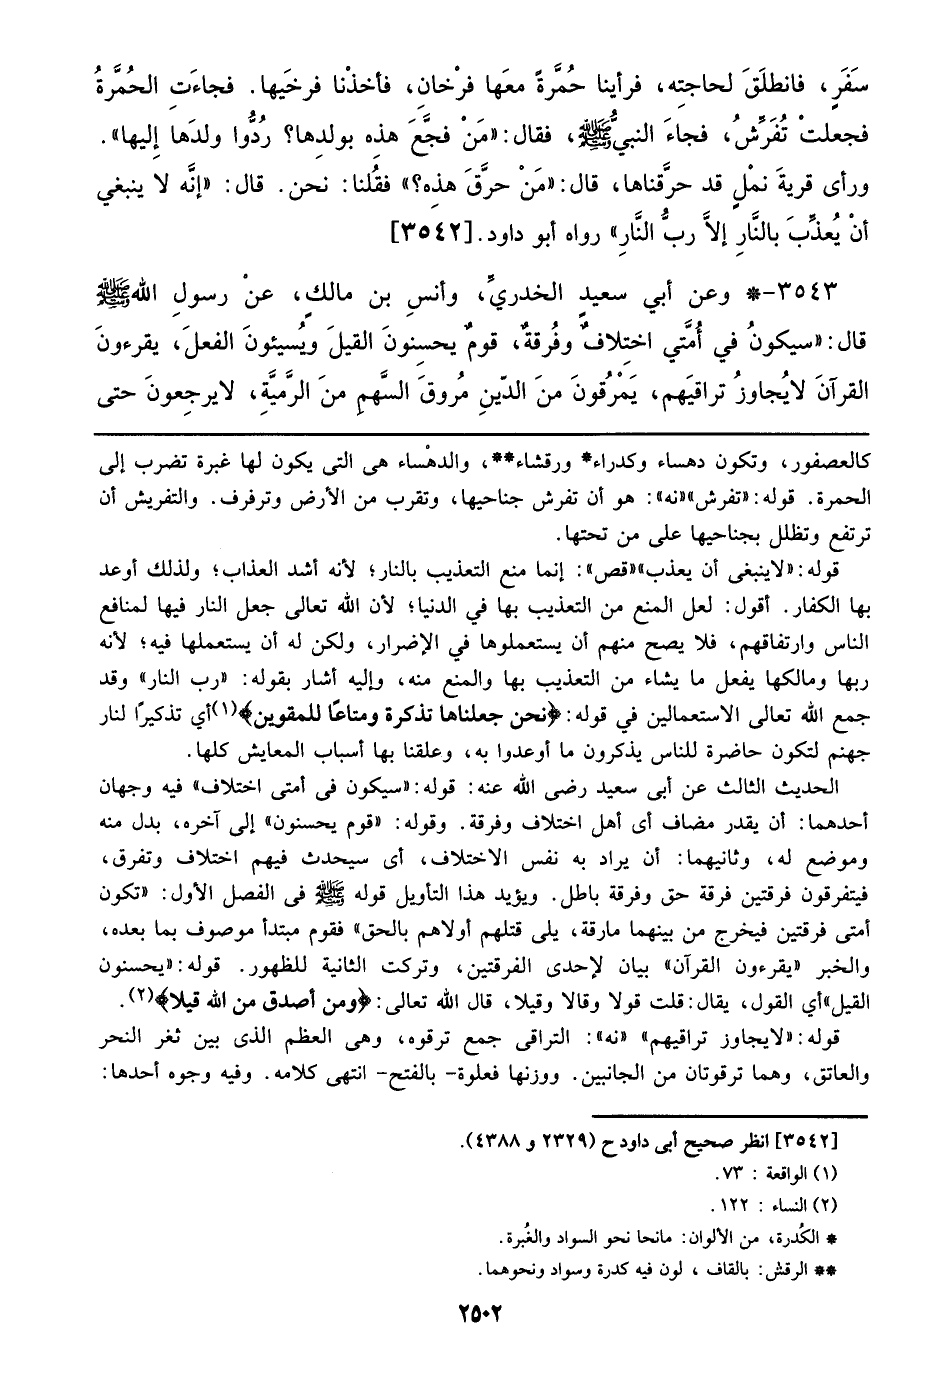 سَفَرٍ، فانطلَقَ لحاجتِه، فرأينا حُمَّرةً معَها فرْخانِ، فأخذْنا فرخَيها. فجاءَتِ الحُمَّرةُ
فجعلتْ تُفَرِّشُ، فجاءَ النبيُّ ﷺ، فقال: «مَنْ فجَّعَ هذه بولدِها؟ رُدُّوا ولدَها إليها».
ورأى قريةَ نملٍ قد حرَّقناها، قال: «مَنْ حرَّقَ هذِه؟» فقُلنا: نحن. قال: «إنَّه لا ينبغي
أنْ يُعذِّبَ بالنَّارِ إلاَّ ربُّ النَّارِ» رواه أبو داود. [٣٥٤٢]
٣٥٤٣-* وعن أبي سعيدٍ الخدريِّ، وأنسِ بن مالكٍ، عنْ رسولِ الله ﷺ
قال: «سيكونُ في أُمَّتي اختِلافٌ وفُرقةٌ، قومٌ يحسِنونَ القيلَ ويُسيئونَ الفعلَ، يقرءونَ
القرآنَ لايُجاوزُ تراقيَهم، يَمْرُقُونَ منَ الدِّينِ مُروقَ السَّهمِ منَ الرَّميَّةِ، لايرجِعونَ حتى
كالعصفور، وتكون دهساء وكدراء* ورقشاء**، والدهْساء هى التى يكون لها غبرة تضرب إلى
الحمرة. قوله: «تفرش» «نه»: هو أن تفرش جناحيها، وتقرب من الأرض وترفرف. والتفريش أن
ترتفع وتظلل بجناحيها على من تحتها.
قوله: «لاينبغى أن يعذب» «قص»: إنما منع التعذيب بالنار؛ لأنه أشد العذاب؛ ولذلك أوعد
بها الكفار. أقول: لعل المنع من التعذيب بها في الدنيا؛ لأن الله تعالى جعل النار فيها لمنافع
الناس وارتفاقهم، فلا يصح منهم أن يستعملوها في الإضرار، ولكن له أن يستعملها فيه؛ لأنه
ربها ومالكها يفعل ما يشاء من التعذيب بها والمنع منه، وإليه أشار بقوله: «رب النار» وقد
جمع الله تعالى الاستعمالين في قوله: ﴿نحن جعلناها تذكرة ومتاعًا للمقوين﴾(١) أي تذكيرًا لنار
جهنم لتكون حاضرة للناس يذكرون ما أوعدوا به، وعلقنا بها أسباب المعايش كلها.
الحديث الثالث عن أبى سعيد رضى الله عنه: قوله: «سيكون فى أمتى اختلاف» فيه وجهان
أحدهما: أن يقدر مضاف أى أهل اختلاف وفرقة. وقوله: «قوم يحسنون» إلى آخره، بدل منه
وموضع له، وثانيهما: أن يراد به نفس الاختلاف، أى سيحدث فيهم اختلاف وتفرق،
فيتفرقون فرقتين فرقة حق وفرقة باطل. ويؤيد هذا التأويل قوله ﷺ فى الفصل الأول: «تكون
أمتى فرقتين فيخرج من بينهما مارقة، يلى قتلهم أولاهم بالحق» فقوم مبتدأ موصوف بما بعده،
والخبر «يقرءون القرآن» بيان لإحدى الفرقتين، وتركت الثانية للظهور. قوله: «يحسنون
القيل» أي القول، يقال: قلت قولا وقالا وقيلا، قال الله تعالى: ﴿ومن أصدق من الله قيلا﴾(٢).
قوله: «لايجاوز تراقيهم» «نه»: التراقى جمع ترقوه، وهى العظم الذى بين ثغر النحر
والعاتق، وهما ترقوتان من الجانبين. ووزنها فعلوة- بالفتح- انتهى كلامه. وفيه وجوه أحدها:
[٣٥٤٢] انظر صحيح أبى داود ح (٢٣٢٩ و ٤٣٨٨).
(١) الواقعة : ٧٣.
(٢) النساء : ١٢٢.
* الكُدرة، من الألوان: مانحا نحو السواد والغُبرة.
** الرقش: بالقاف ، لون فيه كدرة وسواد ونحوهما.
٢٥٠٢